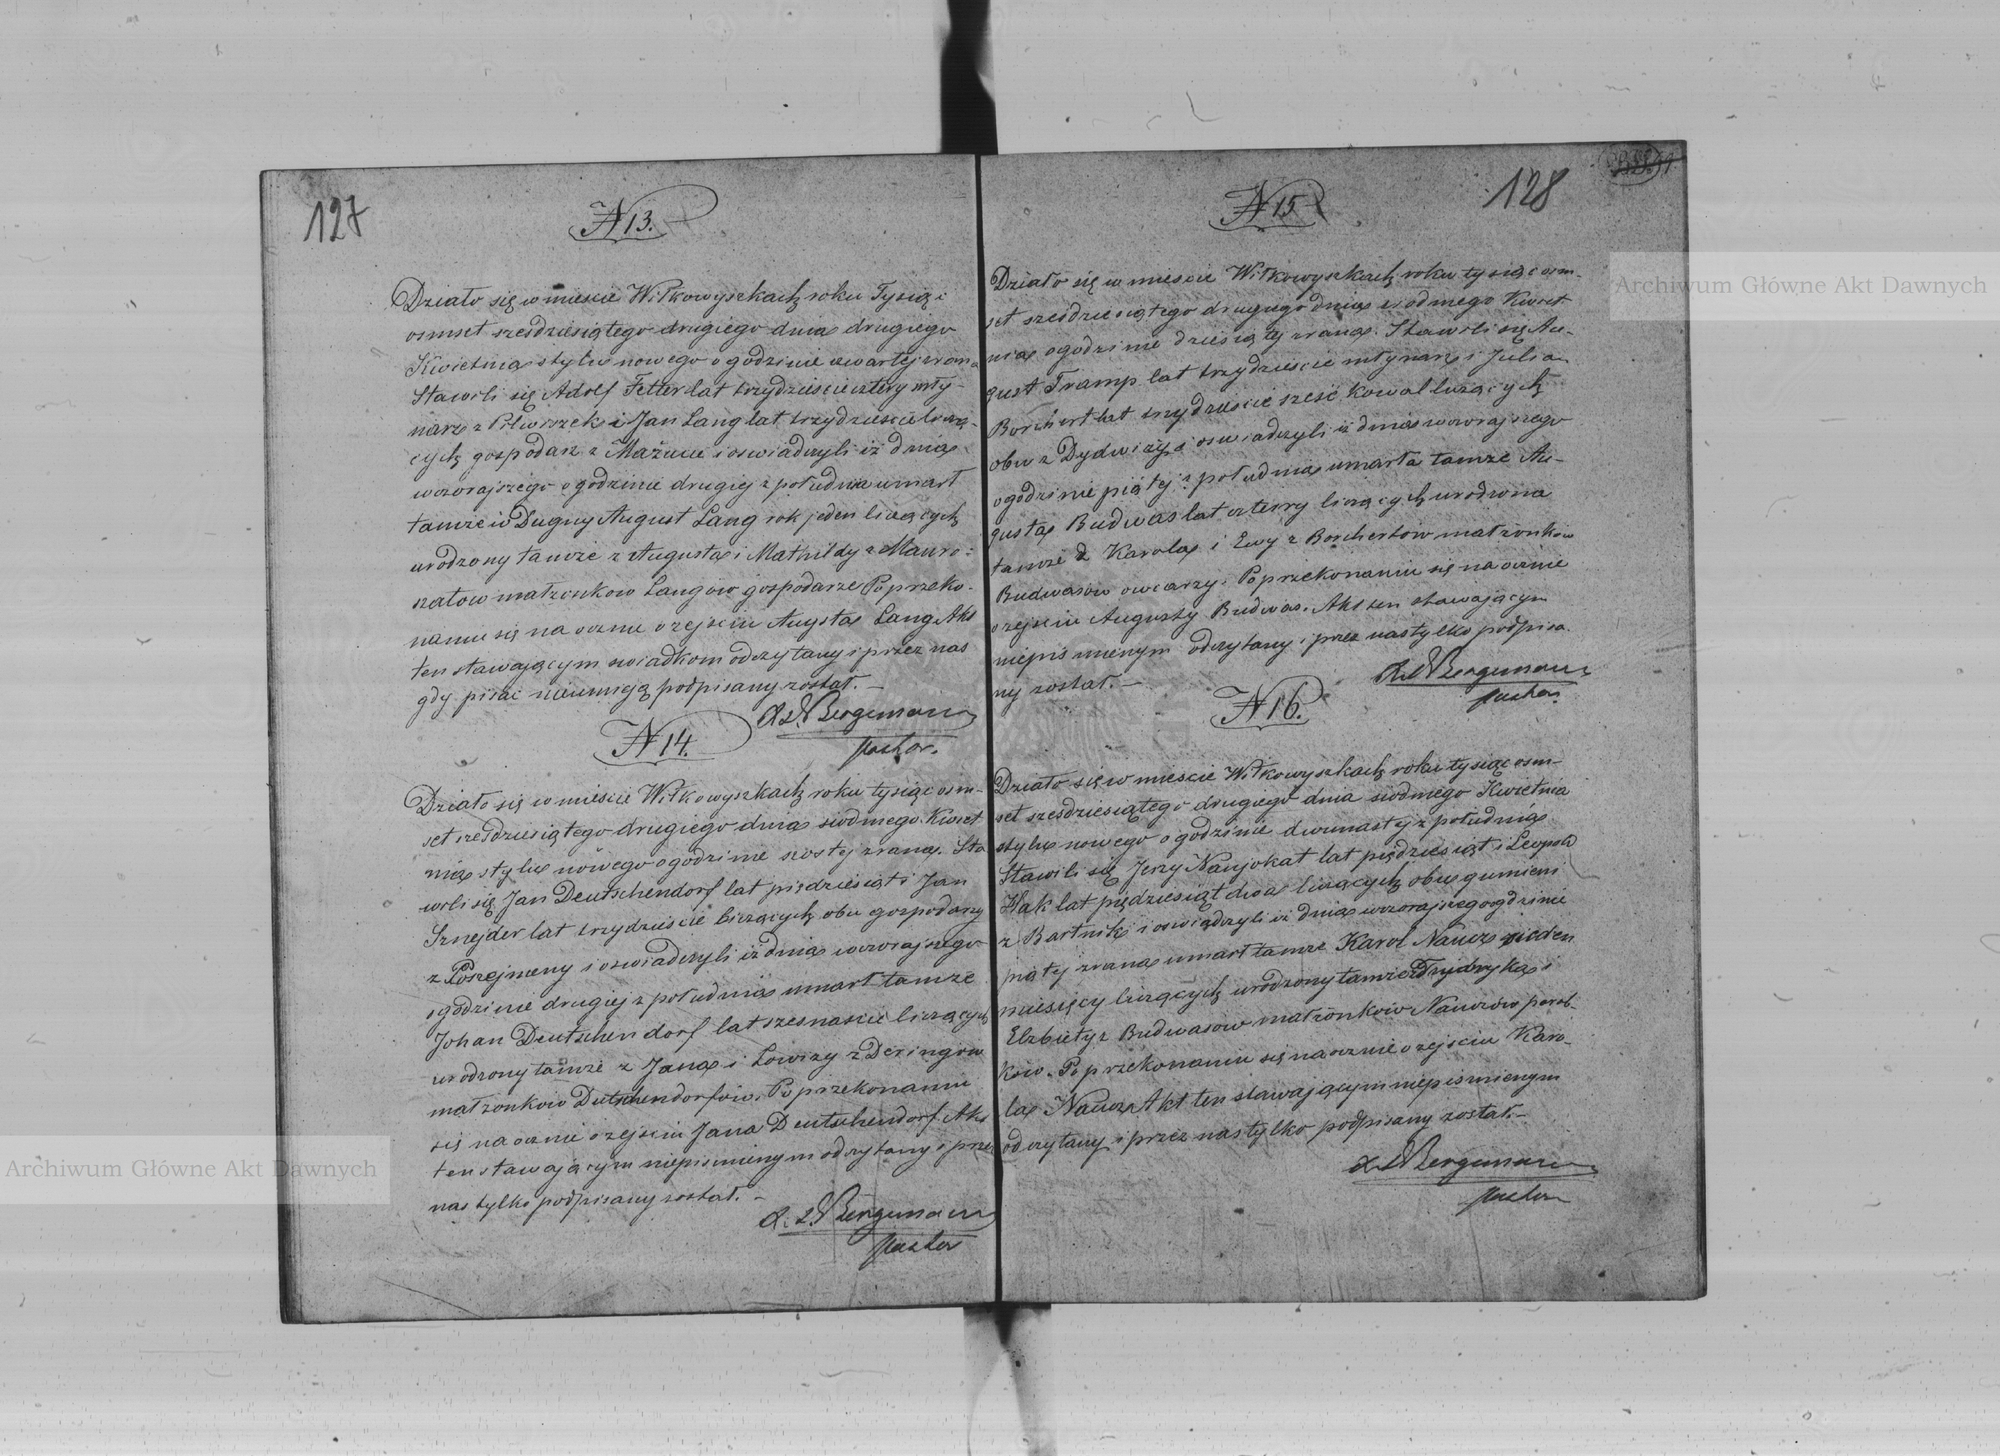 127
N 13.
Działo się w mieście Wiłkowyszkach roku Tysiąc
osmset szesdziesiątego drugiego dnia drugiego
Kwietnia stylu nowego o godzinie czwartej zrana
Stawili się Adolf Fetter lat trzydziescie cztery mły-
narz z Pilwiszek i Jan Lang lat trzydziescie licza-
cych gospodarz z i oswiadczyli iż dnia
wczorajszego o godzinie drugiej z południa umarł
tamże w Dugny August Lang rok jeden liczących
urodzony tamże z Augusta i Mathildy z Mauro-
szatow małzonkow Langow gospodarze Po przeko-
naniu się na ocznie o zejsciu Augusta Lang Akt
ten stawającym swiadkom odczytany i przez nas
gdy pisac nieumieją podpisany został. —
Bergmann
Pastor.
N 14.
Działo się w mieście Wiłkowyszkach roku tysiąc osm-
set szesdziesiątego drugiego dnia siodmego Kwiet
nia stylu nowego o godzinie szostej zrana. Sta
wili się Jan Deutschendorf lat pięcdziesiąt i Jan
Sznejder lat trzydziescie liczących obu gospodarzy
z Poszejmeny i oswiadczyli iż dnia wczorajszego
o godzinie drugiej z południa umarł tamze
Johan Deutschendorf lat szesnascie liczących
urodzony tamże z Jana i Lowizy z Deringow
małzonkow Dutschendorfow. Po przekonaniu
się na ocznie o zejsciu Jana Deutschendorf. Akt
ten stawającym niepismienym odczytany i przez
nas tylko podpisany został. —
Bergmann
Pastor
128
N 15
Działo się w mieście Wiłkowyszkach roku tysiąc osm-
set szesdziesiątego drugiego dnia siodmego Kwiet
nia o godzinie dziesiątej zrana. Stawili się Au-
gust Tramp lat trzydziescie młynarz i Julian
Borchert lat trzydziescie szesć kowal liczących
obu z Dydwiży i oswiadczyli iż dnia wczorajszego
o godzinie piątej z południa umarła tamże Au-
gusta Budwas lat cztery liczących urodzona
tamże z Karola i Ewy z Borchertow małzonkow
Budwasow owczarzy. Po przekonaniu się na ocznie
o zejsciu Augusty Budwas. Akt ten stawającym
niepismienym odczytany i przez nas tylko podpisa
ny został. —
Bergmann
Pastor.
N 16.
Działo się w mieście Wiłkowyszkach roku tysiąc osm-
set szesdziesiątego drugiego dnia siodmego Kwietnia
stylu nowego o godzinie dwunastej z południa
Stawili się Jerzy Naujokat lat pięcdziesiąt i Leopold
Hak lat pięcdziesiąt dwa liczących obu gumieni
z Bartnik i oswiadczyli iż dnia wczorajszego o godzinie
piątej zrana umarł tamże Karol Naucz siedem
miesięcy liczących urodzony tamże z Frydryka i
Elzbiety z Budwasow małzonkow Nauczow parob-
kow. Po przekonaniu się na ocznie o zejsciu Karo-
la Naucz Akt ten stawającym niepismienym
odczytany i przez nas tylko podpisany został. —
Bergmann
Pastor
Archiwum Główne Akt Dawnych
Archiwum Główne Akt Dawnych